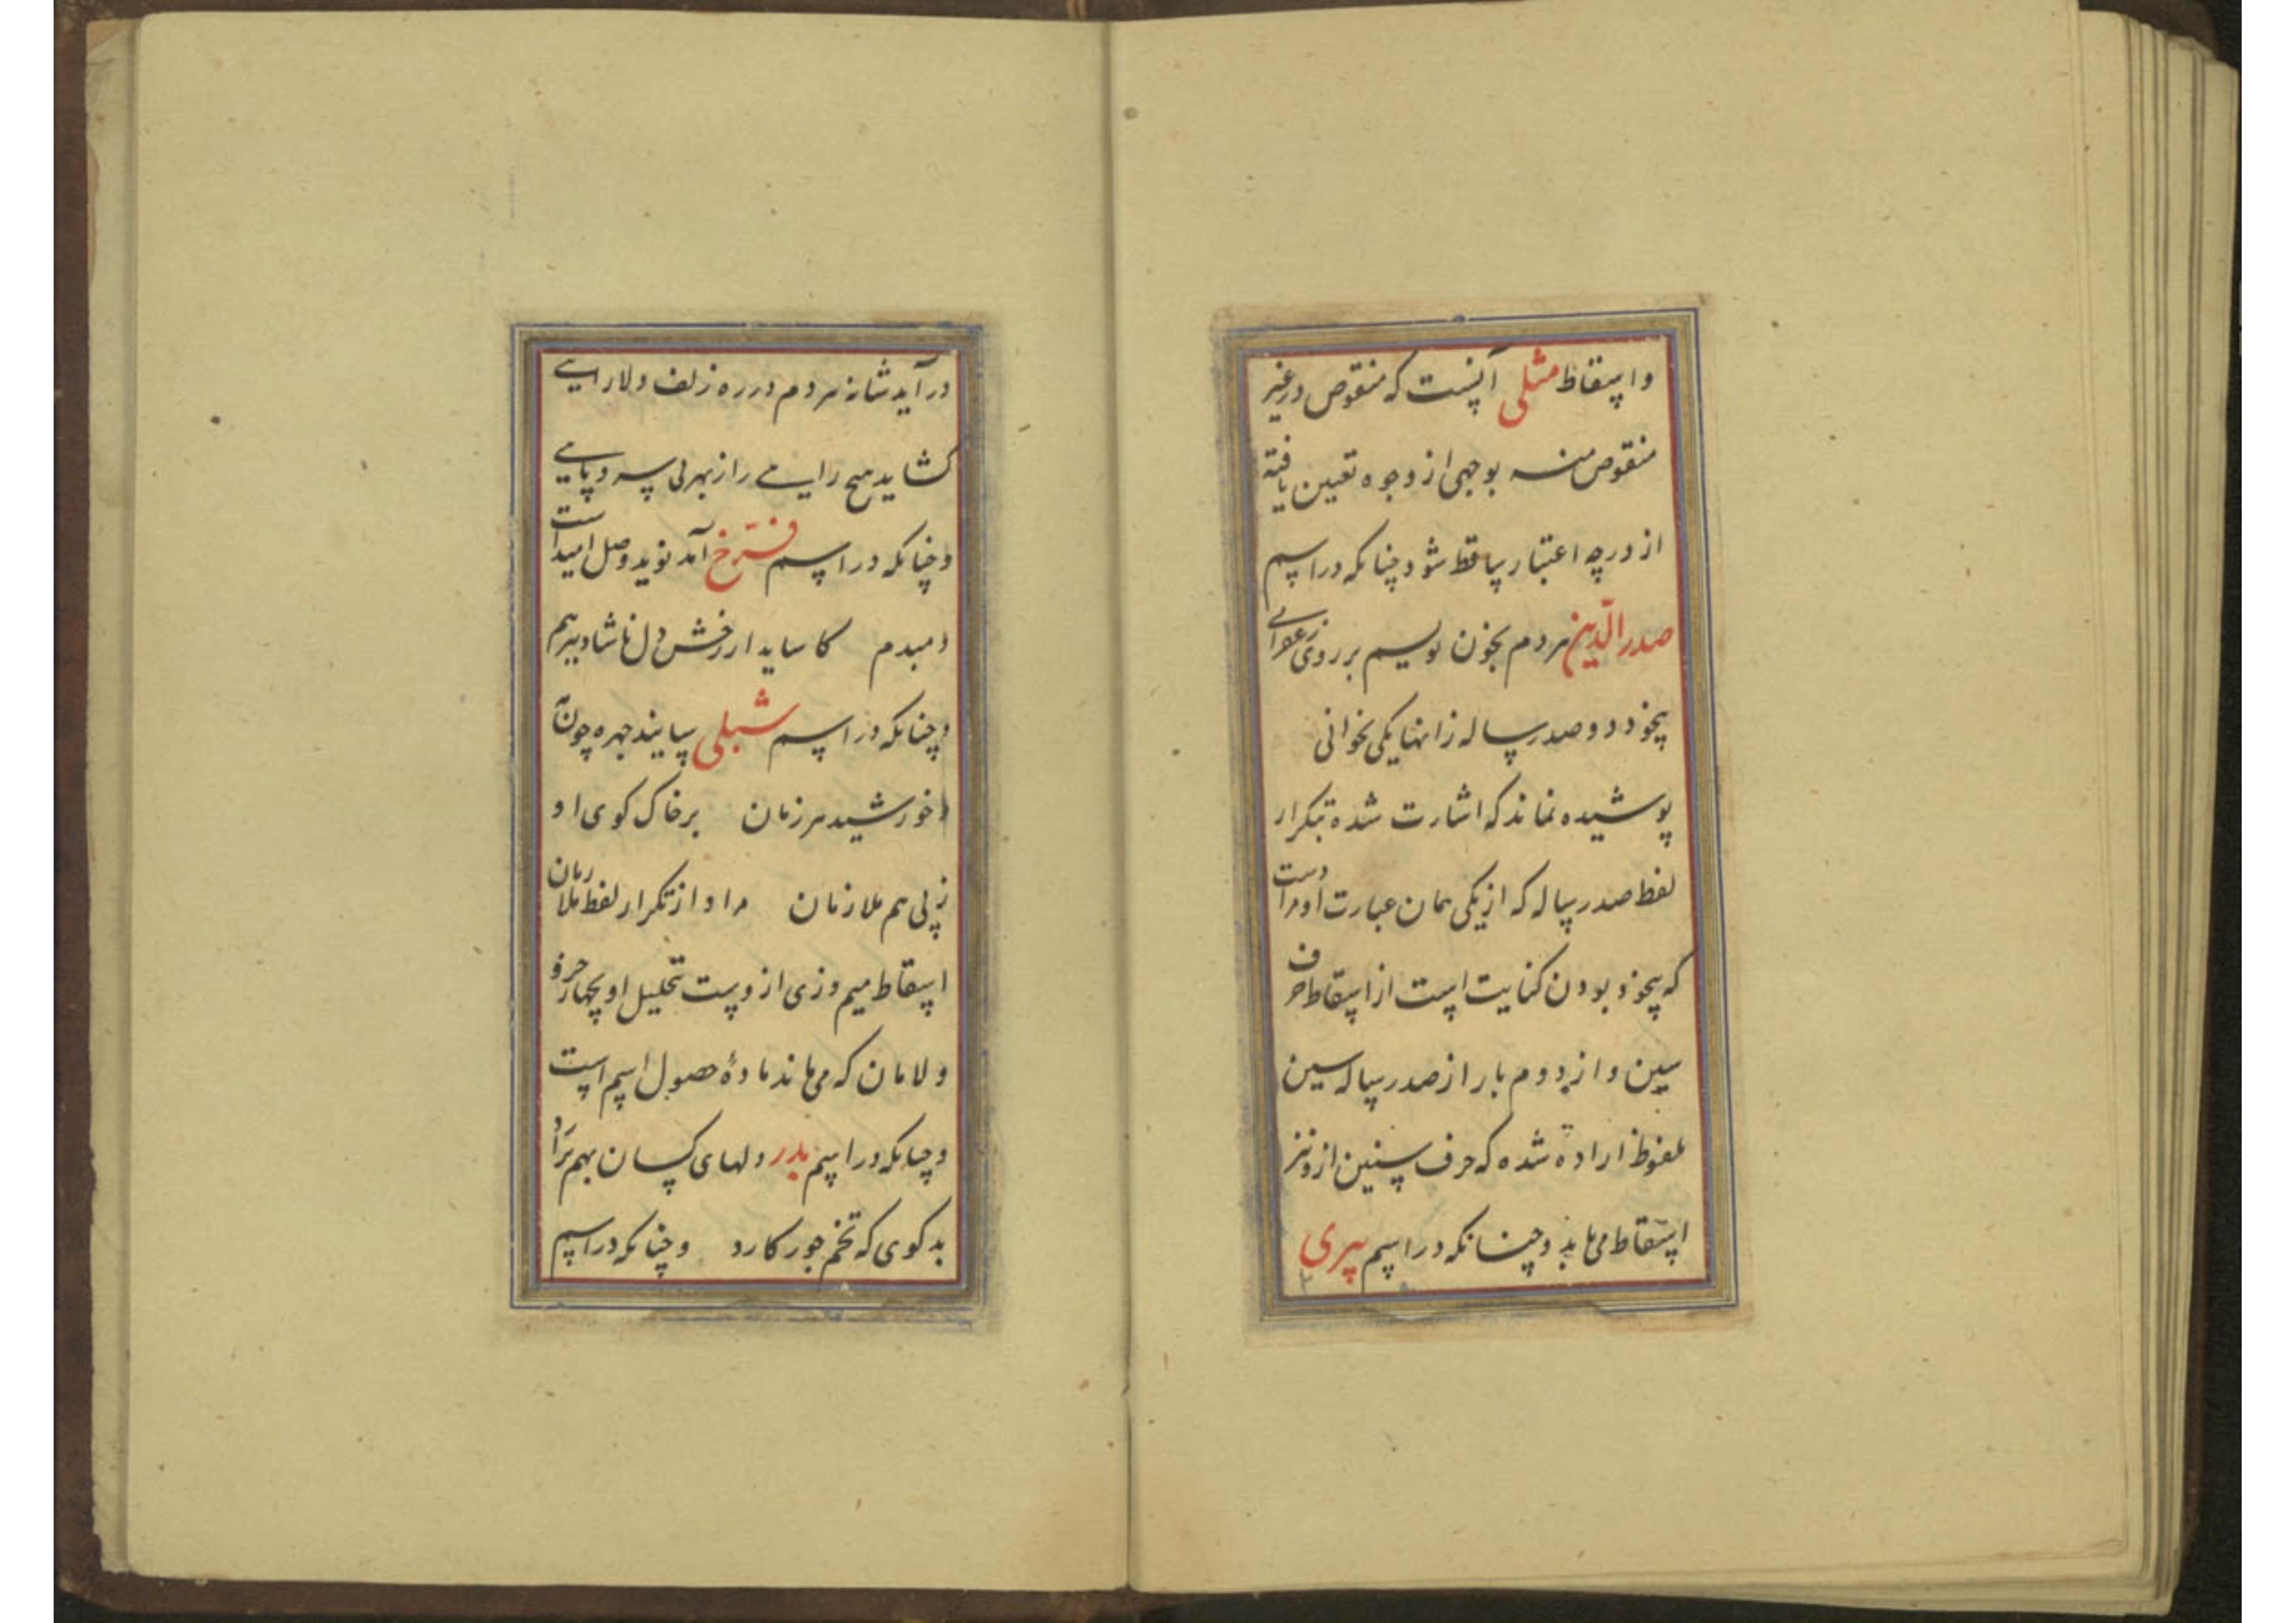 واسقاط مثلی آنست که منقوص در غیر
منقوص منه بوجهی از وجوه تعیین یافته
از درجه اعتبار ساقط شود چنانکه در اسم
صدرالدین مردم بخون نویسم بر روی
بیخود دو صد رساله زانها یکی نخوانی
پوشیده نماند که اشارت شده بتکرار
لفظ صد رساله که از یکی همان عبارت او مراد است
که بیخود بودن کنایت است از اسقاط حرف
سین و از دوم بار از صد رساله سین
ملفوظ اراده شده که حرف سین از و نیز
اسقاط می یابد و چنانکه در اسم سری
در آید شانه هر دم در ره زلف دلارایی
کشاید هیچ رایی را زبهر بی سر و پایی
و چنانکه در اسم فرخ آمد نوید وصل امید است
دمبدم کاساید از رخش دل ناشاد بیرهم
و چنانکه در اسم شبلی سایند چهره چون
خورشید هر زمان بر خاک کوی او
زپی هم ملازمان مراد از تکرار لفظ ملازمان
اسقاط میم و زی ازوست تحلیل او بچهار حرف
و لامان که می ماند مادهٔ حصول اسم است
و چنانکه در اسم بدر دلهای کسان بهم برآرد
بد کوی که تخم جور کارد و چنانکه در اسم